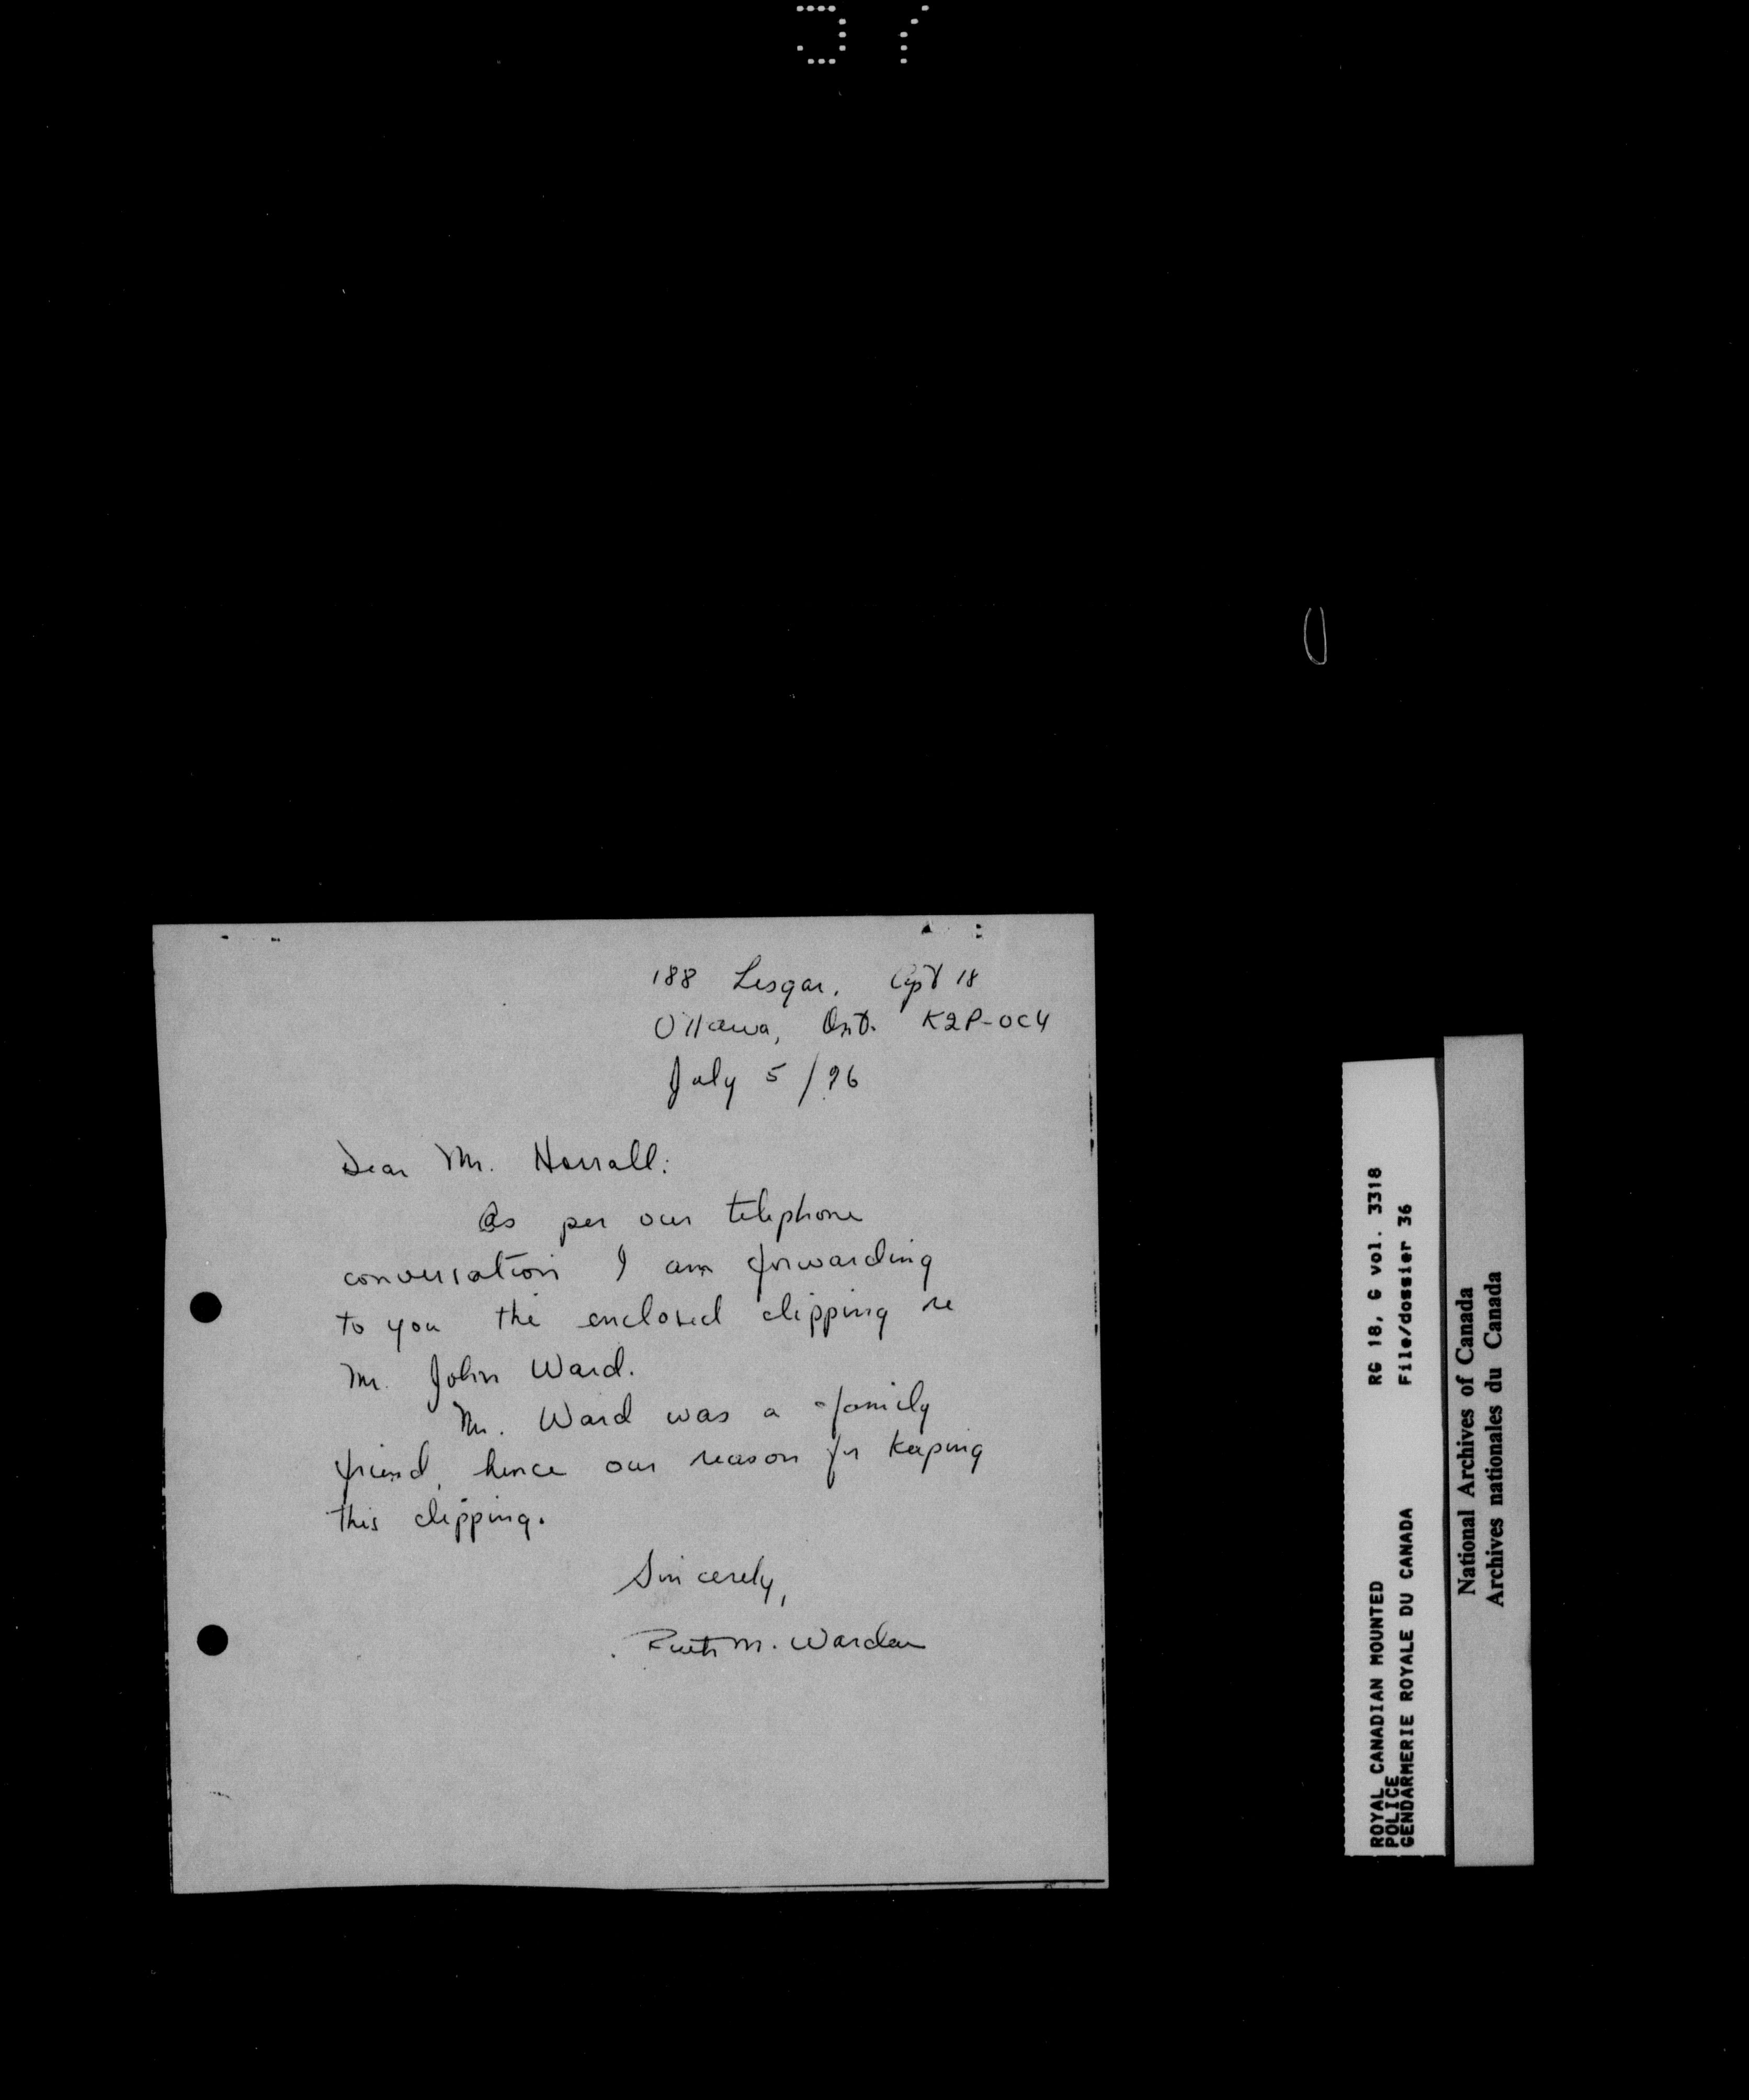 188 Lisgar, Apt 18
Ottawa, Ont. K2P-0C4
July 5/96
Dear Mr. Horrall:
As per our telephone
conversation I am forwarding
to you the enclosed clipping re
Mr. John Ward.
Mr. Ward was a family
friend, hence our reason for keeping
this clipping.
Sincerely,
Ruth M. Warden
ROYAL CANADIAN MOUNTED RG 18, G vol. 3318
POLICE
GENDARMERIE ROYALE DU CANADA File/dossier 36
National Archives of Canada
Archives nationales du Canada